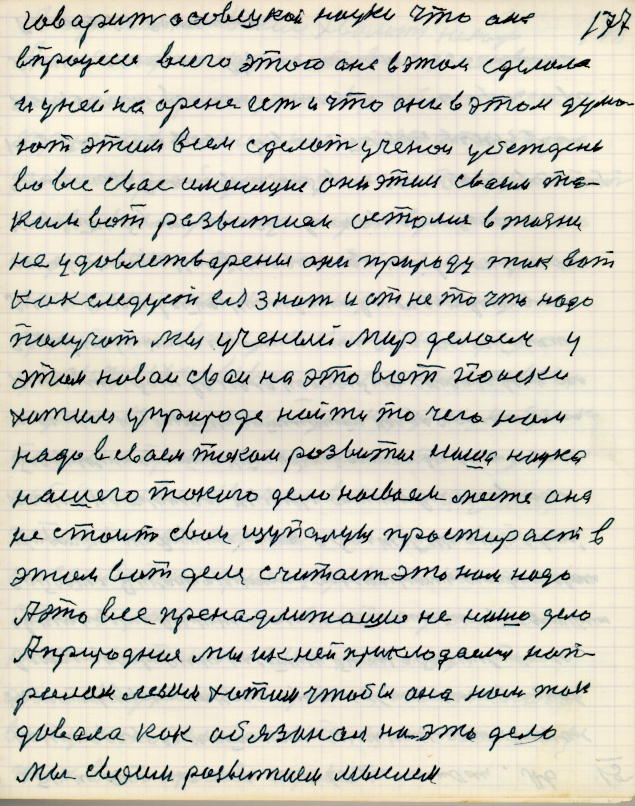 говарит осовецкой науки что она 177
впроцесе всего этого она вэтом сделала
и уней на арене ест и что они в этом дума-
ют этим всем сделат ученои убеждены
во все свае имеющие они этим своим та-
ким вот развитием остолис в жизни
не удовлетварены они природу так вот
как следует её знат и от не то что надо
получат мы ученый мир делаем у
этом новаи сваи на это вот поиски
хотим уприроде найти то чего нам
надо в своем таком развитии наша наука
нашего такого дела на своем месте она
не стоит свои щупалцы простирает в
этом вот деле считает это нам надо
Аэто все пренадлижащие не наше дело
Априродная мы ик ней прикладаемся нап-
ралом лезим хотим чтобы она нам так
давала как обязаная на это дело
мы своим развитием мыслим